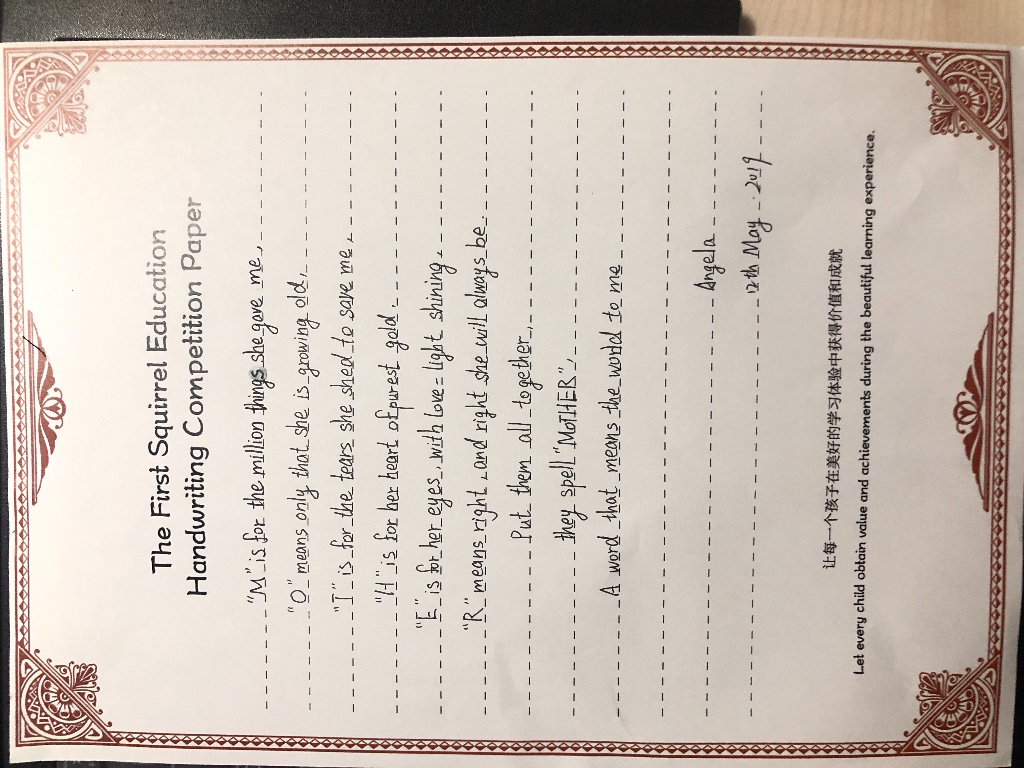 The First Squirrel Education
Handwriting Competition Paper
"M" is for the million things she gave me,
"O" means only that she is growing old,
"T" is for the tears she shed to save me,
"H" is for her heart of purest gold.
"E" is for her eyes, with love-light shining,
"R" means right, and right she will always be.
Put them all together,
they spell "MOTHER",
A word that means the world to me
Angela
12th May . 2019
让每一个孩子在美好的学习体验中获得价值和成就
Let every child obtain value and achievements during the beautiful learning experience.